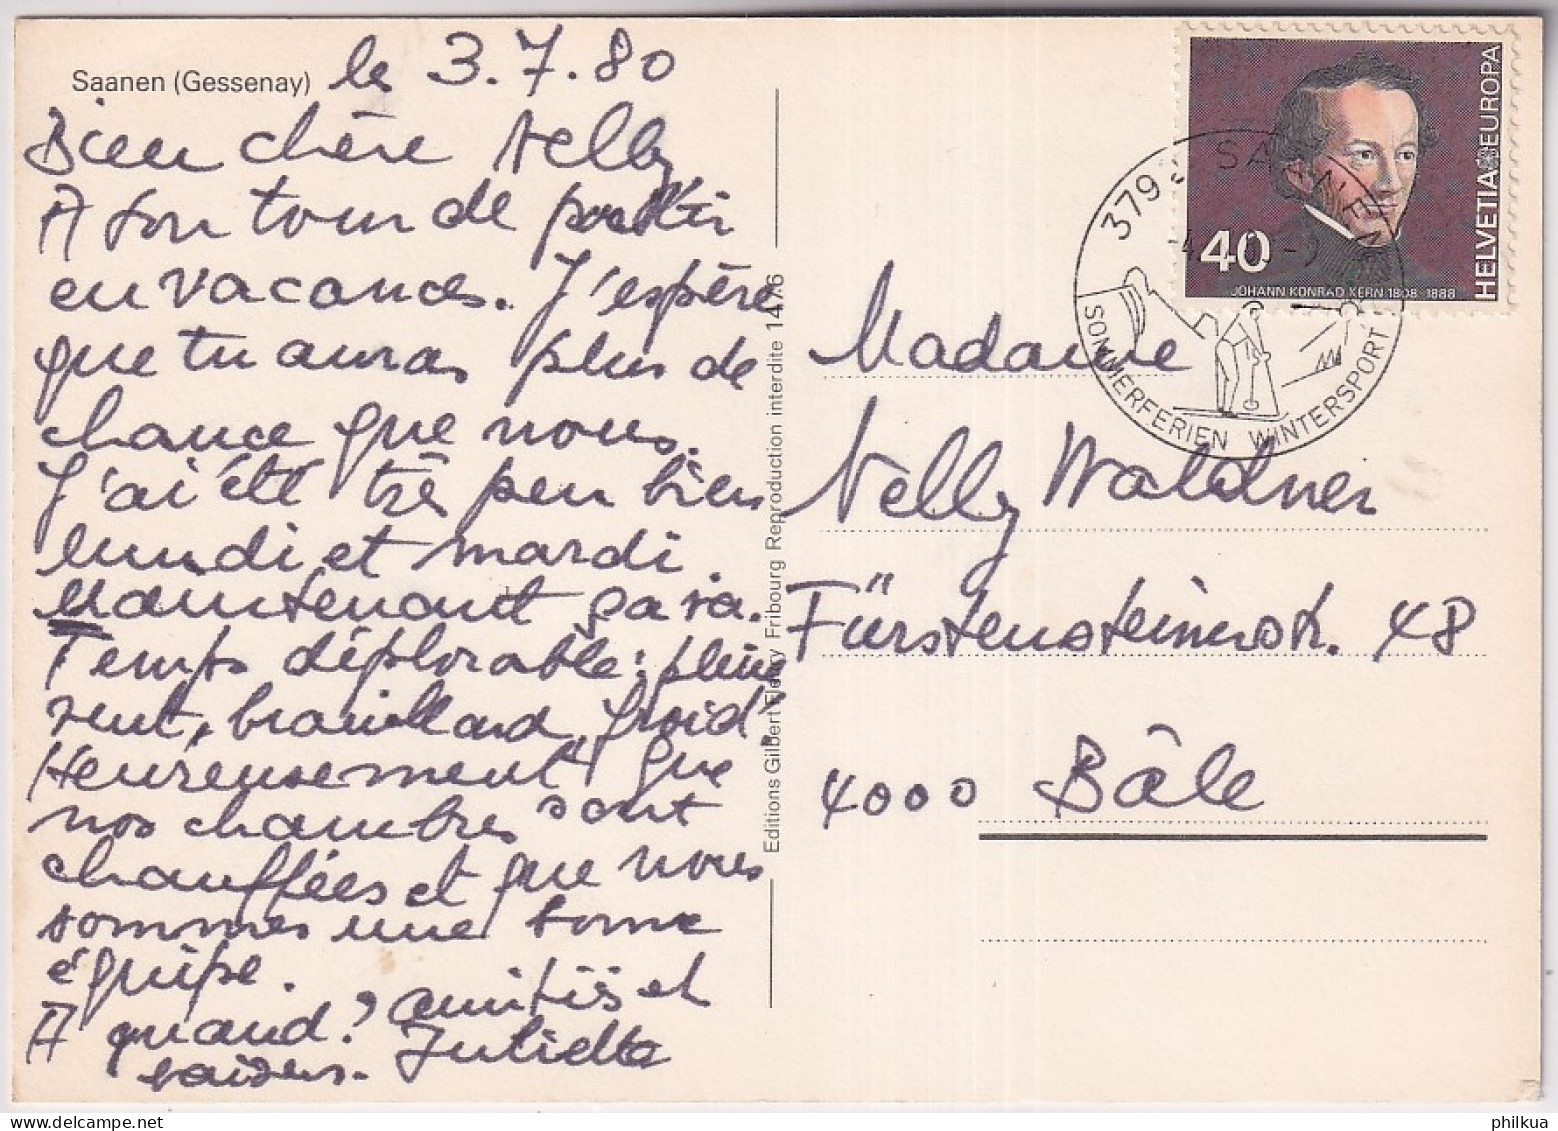 Saanen (Gessenay) le 3.7.80
Bien chère Nelly
A ton tour de partir
en vacances. J'espère
que tu auras plus de
chance que nous.
J'ai été très peu bien
lundi et mardi.
Maintenant ça va.
Temps déplorable: pluie
vent, brouillard, froid!
Heureusement que
nos chambres sont
chauffées et que nous
sommes une bonne
équipe.
A quand? amitiés et
baisers. Juliette
Editions Gilbert Fleury Fribourg Reproduction interdite 1476
HELVETIA EUROPA
40
JOHANN KONRAD KERN 1808-1888
SAANEN
SOMMERFERIEN WINTERSPORT
Madame
Nelly Waldner
Fürstensteinerstr. 48
4000 Bâle
philkua